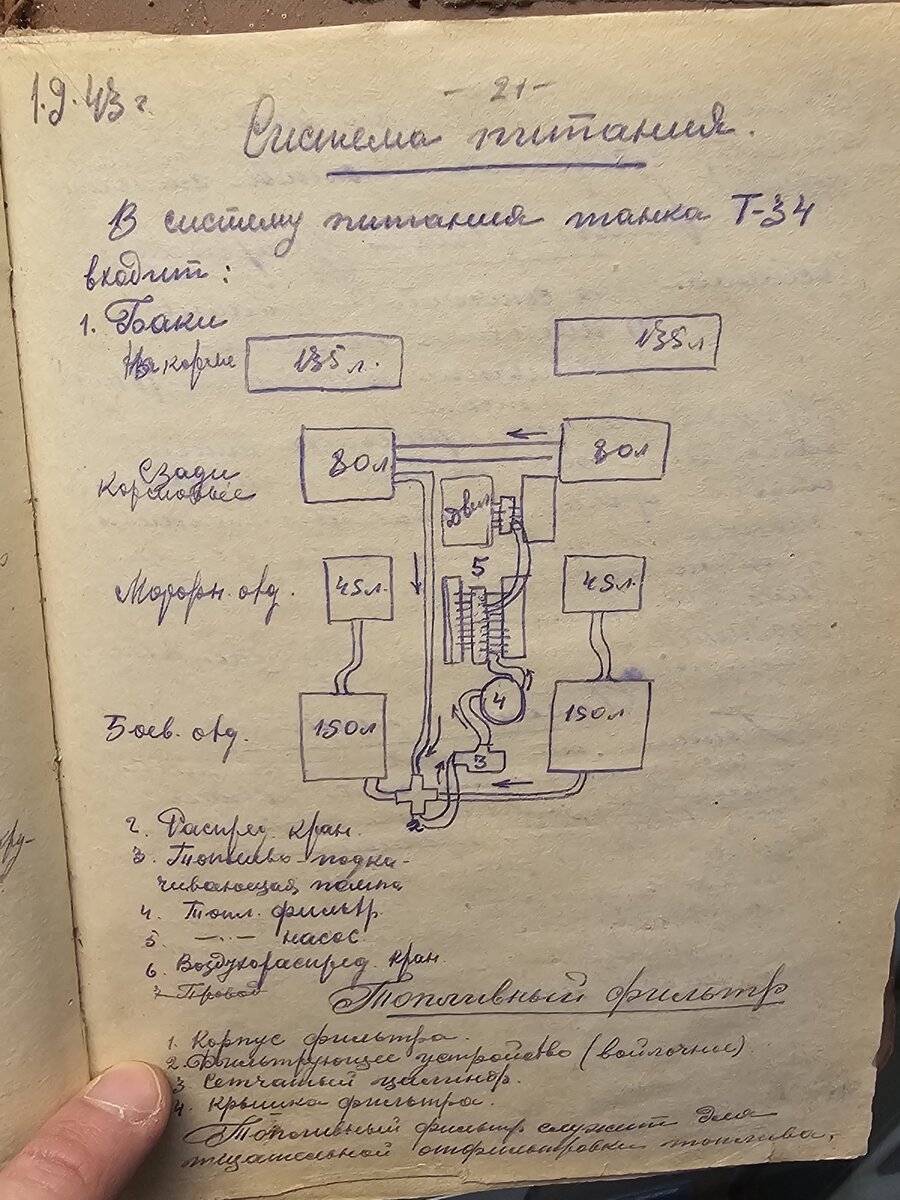 1.9.43 г.
- 21 -
Система питания.
В систему питания танка Т-34
входит:
1. Баки
На корме 135 л. 135 л
Сзади
кормовые
80л 80л
Двиг.
5
Моторн. отд. 45л. 45л
4
Боев. отд. 150л 150л
3
2
2. Распред. кран.
3. Топливо-подка-
чивающая помпа
4. Топл. фильтр
5. —"— насос.
6. Воздухораспред. кран.
7. Провод
Топливный фильтр
1. Корпус фильтра.
2. Фильтрующее устройство (войлочное)
3. Сетчатый цилиндр.
4. Крышка фильтра.
Топливный фильтр служит для
тщательной отфильтровки топлива.